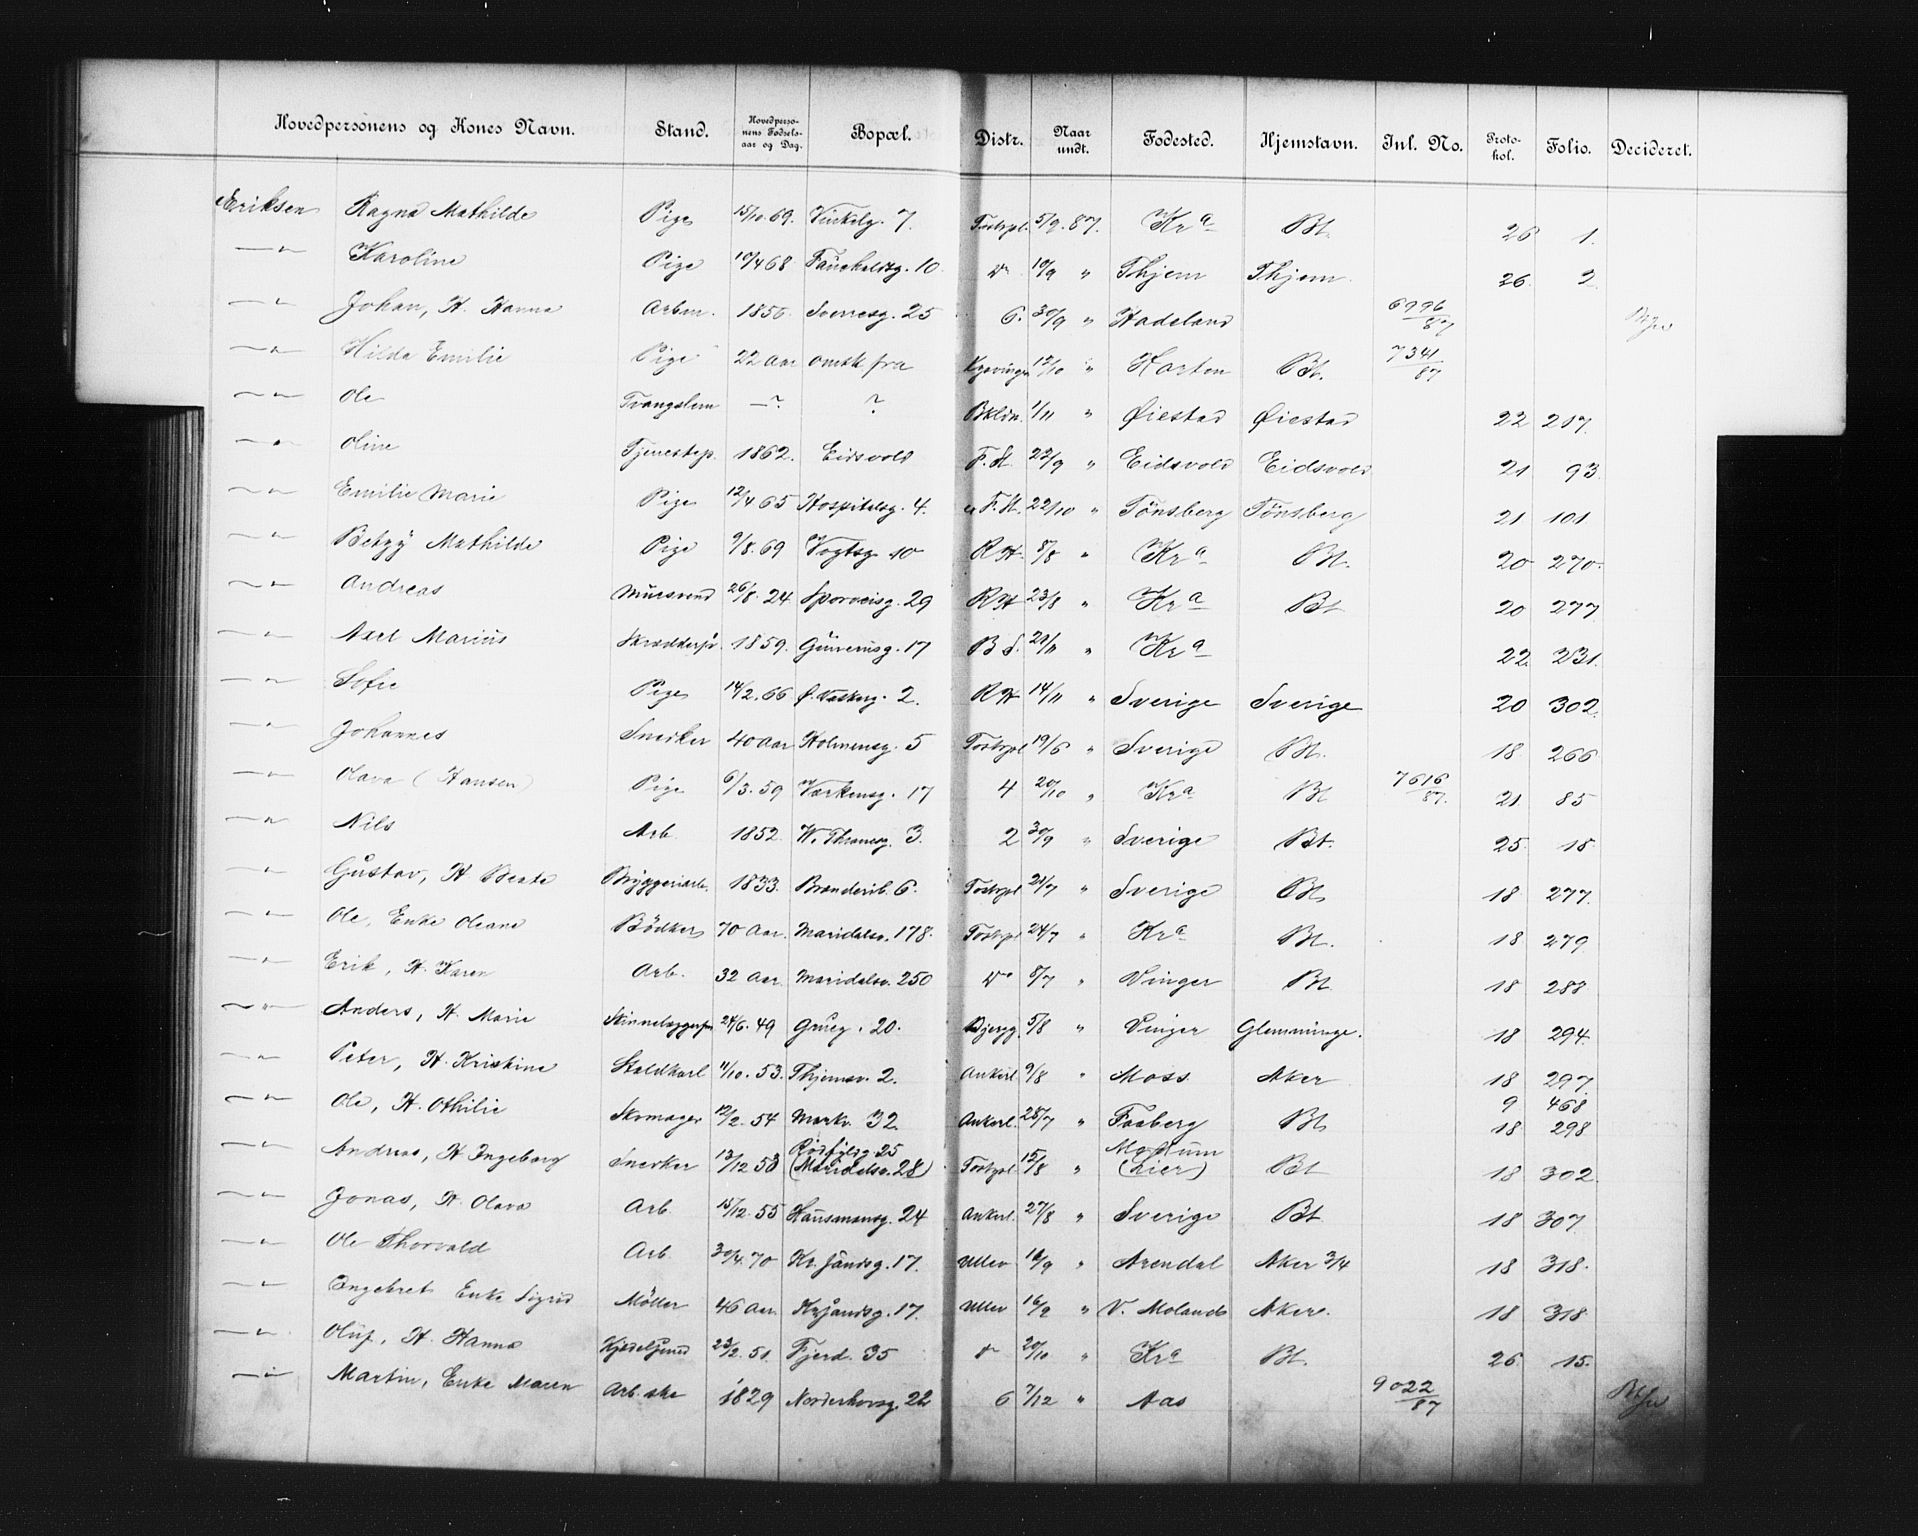 Hovedpersonens og Kones Navn. Stand. Hovedpersonens Fødselsaar og Dag. Bopæl. Distr. Naar undt. Fødested. Hjemstavn. Inl. No. Protokol. Folio. Decideret.
Eriksen Ragna Mathilde Pige 15/10.69. Vinkelg. 7. 5/9.87. Kra Bt. 26 1.
—"— Karoline Pige 10/4 68 Fauchaldsg. 10 Do 10/9 " Thjem Thjem. 26 2
—"— Johan, H. Hanna Arbm. 1856. Sverresg. 25 6. 30/9 " Hadeland 6996/87
—"— Hilda Emilie Pige 22 Aar omstr fra 12/10 " Horten Bt. 7341/87
—"— Ole Tvangslem —? ? Bkldn. 1/11 " Øiestad Øiestad 22 217.
—"— Oline Tjenestep. 1862. Eidsvold F.St. 22/9 " Eidsvold Eidsvold 21 93.
—"— Emilie Marie Pige 12/4 65 Hospitalsg. 4. F.St. 22/10 " Tönsberg Tönsberg 21 101.
—"— Betzy Mathilde Pige 9/8.69 Vogtsg. 10 RH. 8/8 " Kra Bt. 20 270.
—"— Andreas Mursvend 26/8.24. Sporveisg. 29 RH 23/8 " Kra Bt 20 277
—"— Axel Marius 1859. 17 B.S. 21/11 " Kra 22 231.
—"— Sofie Pige 14/2.66 2. RH 14/11 " Sverige Sverige 20 302.
—"— Johannes Snedker 40 Aar Holmensg. 5 19/6 " Sverige Bt. 18 266
—"— Olava (Hansen) Pige 6/3.59 Værkensg. 17 4 20/10 " Kra Bt 7616/87. 21 85
—"— Nils Arb. 1852. W. Thranesg. 3. 2 30/9 " Sverige Bt. 25 18.
—"— Gustav, H Beate Bryggeriarb. 1833. 6. 21/7 " Sverige Bt. 18 277.
—"— Ole, Enke Oleane Bödker 70 Aar. Maridalsv. 178. 24/7 " Kra Bt. 18 279.
—"— Erik, H. Karen Arb. 32 Aar Maridalsv. 250 Do 8/7 " Vinger Bt 18 288
—"— Anders, H. Marie 24/6.49 Grueg. 20. Bjergg. 5/8 " Vinger Glemminge. 18 294.
—"— Peter, H. Kristine Staldkarl 11/10.53. Thjemsv. 2. Ankerl. 9/8 " Moss. Aker 18 297.
9 468
—"— Ole, H. Othilie Skomager 12/2.54 Markv. 32 Ankerl. 28/7 " Faaberg Bt. 18 298
25 Modum
—"— Andreas, H Ingeborg Snedker 13/12 53 (Maridalsv. 28) 15/8 " (Lier) Bt 18 302
—"— Jonas, H. Olava Arb. 15/12.55 Hausmansg. 24 Ankerl. 27/8 " Sverige Bt 18 307
—"— Ole Thorvald Arb. 30/4.70 Kr.sandsg. 17. Ullev 16/9 " Arendal Aker 3/4 18 318.
—"— Engebret Enke Sigrid Möller 46 Aar. Kr.sandsg. 17. Ullev 16/9 " V. Molands Aker. 18 318
—"— Oluf, H. Hanna Kjedelsmed 23/2.51. Fjerd. 35 Do 20/10 " Kra Bt. 26 15.
—"— Martin, Enke Maren Arb.ske 1829 Norderhovsg. 22 6 7/12 " Aas 9022/87